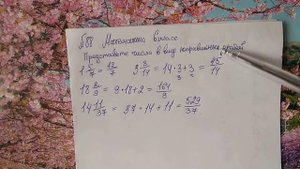 Математика 6 класс
Представьте числа в виде неправильных дробей
1 5/7 = 12/7 3 3/14 = 14·3+3 = 45/14
18 2/9 = 9·18+2 = 164/9
14 11/37 = 37·14+11 = 529/37